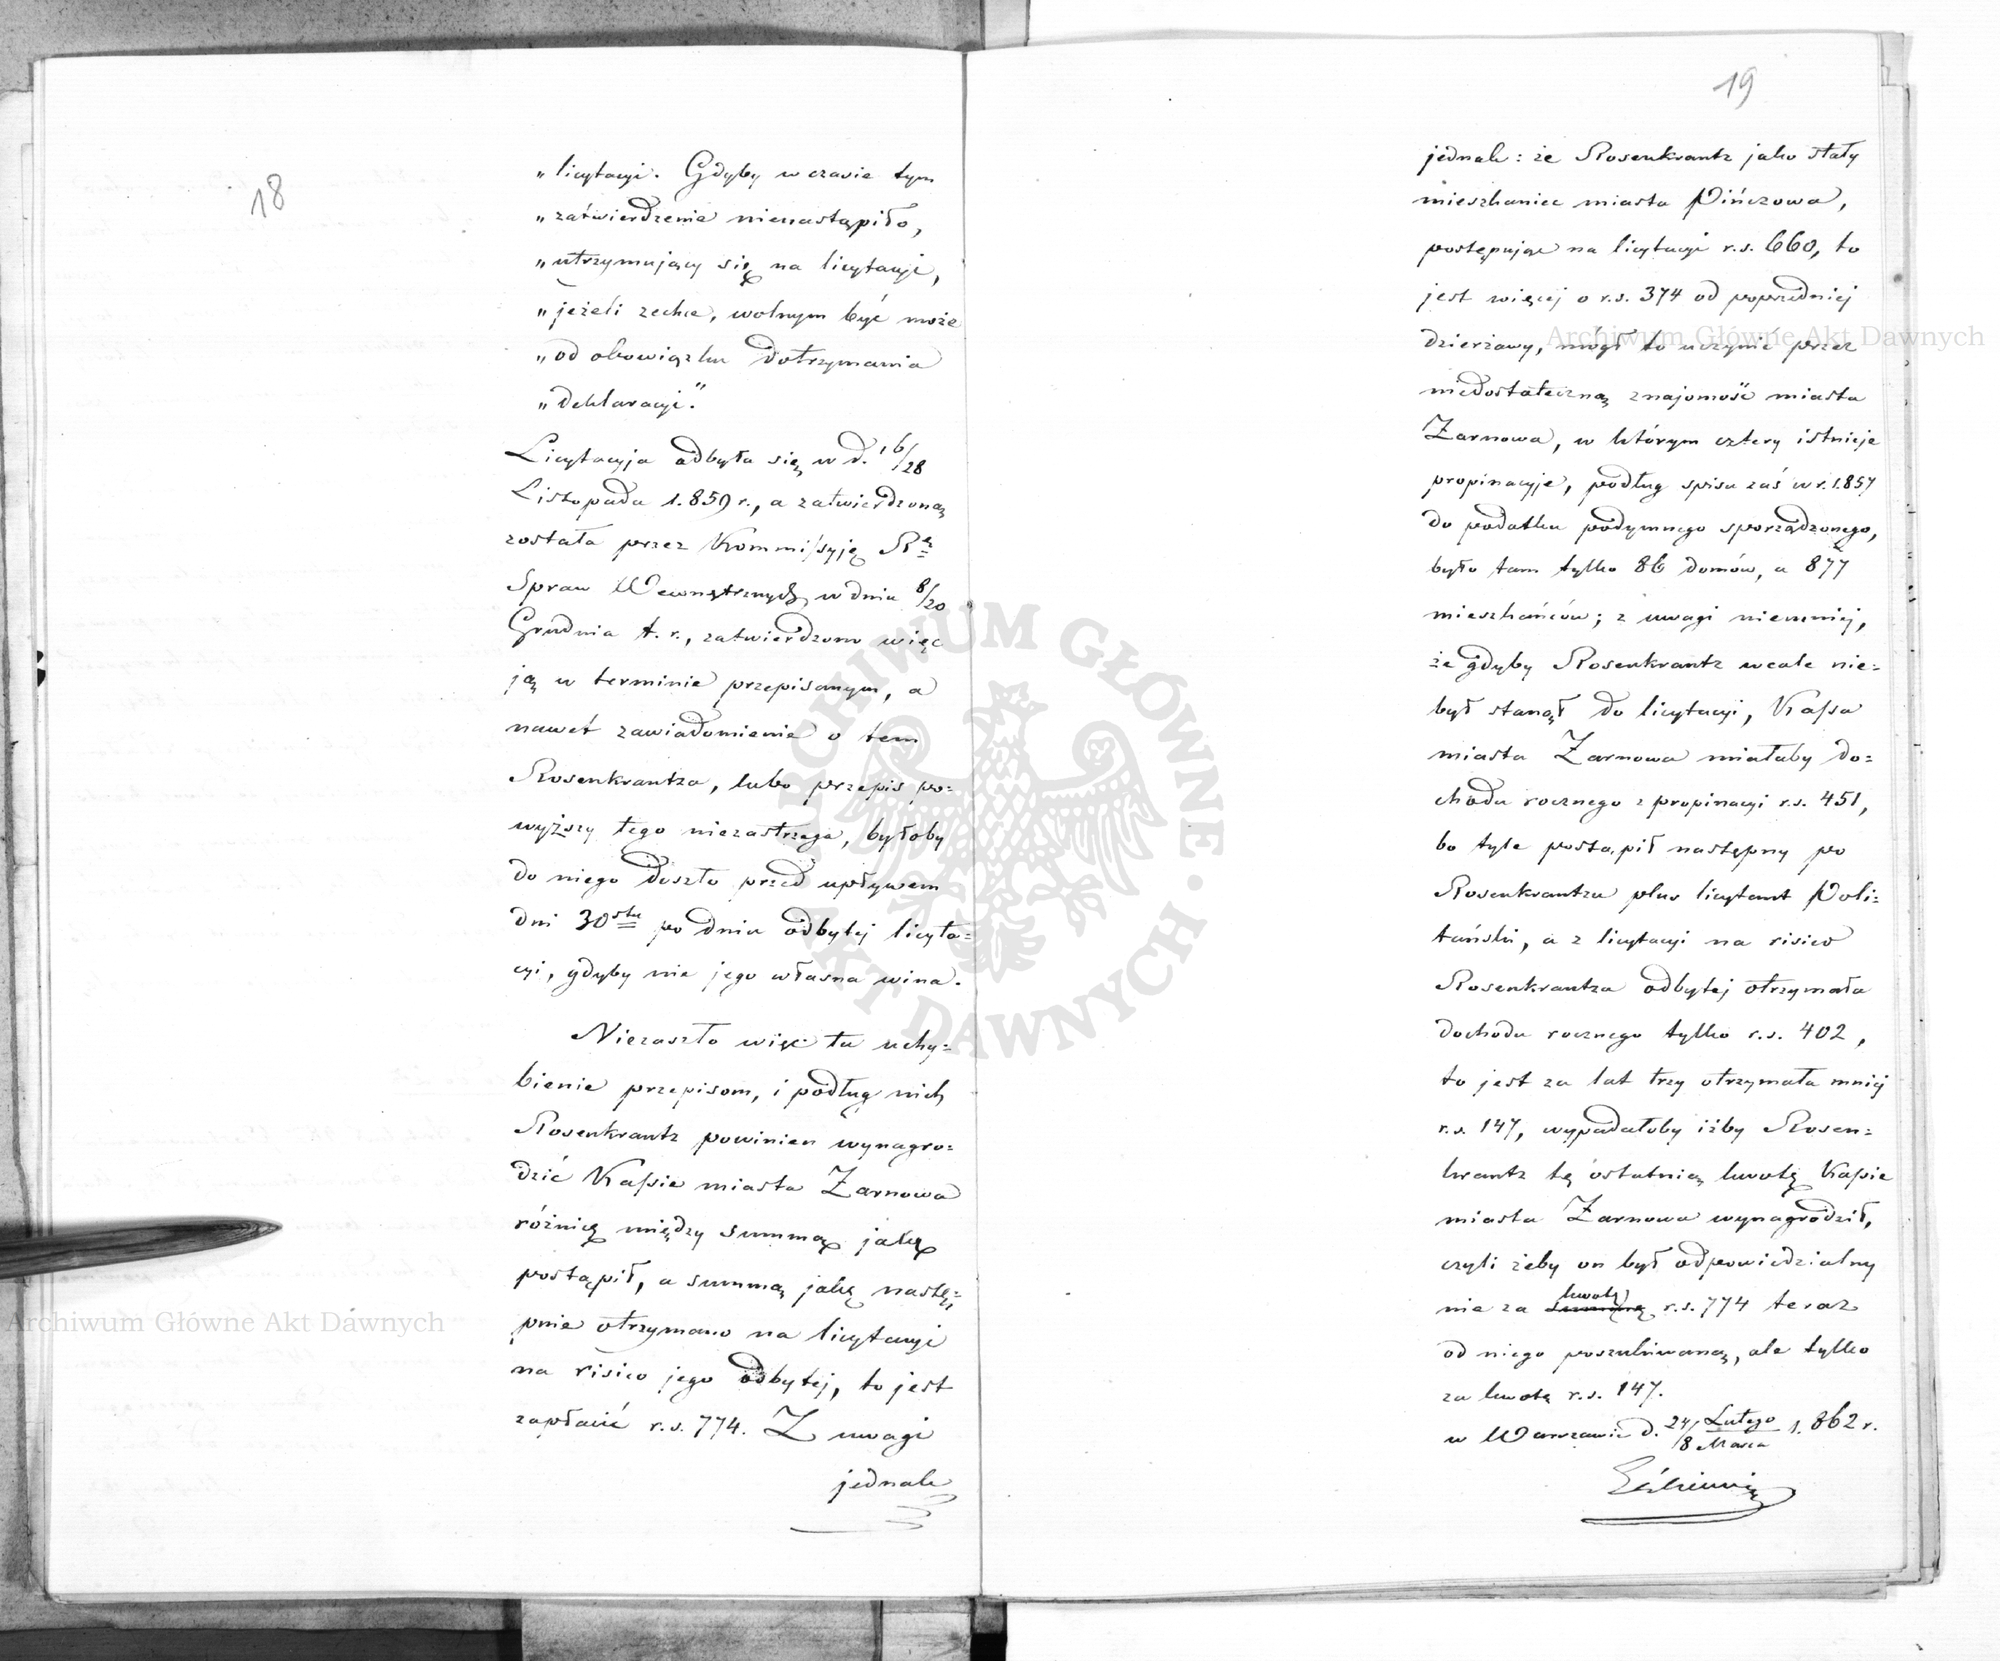 18
„licytacyi. Gdyby w czasie tym
„zatwierdzenie nienastąpiło,
„utrzymujący się na licytacyi,
„jeżeli zechce, wolnym być może
„od obowiązku dotrzymania
„deklaracyi."
Licytacyja odbyła się w d. 16/28
Listopada 1.859 r., a zatwierdzoną
została przez Kommissyję Rz
Spraw Wewnętrznych w dniu 8/20
Grudnia t. r., zatwierdzono więc
ją w terminie przepisanym, a
nawet zawiadomienie o tem
Rosenkrantza, lubo przepis po=
wyższy tego niezastrzega, byłoby
do niego doszło przed upływem
dni 30stu po dniu odbytej licyta=
cyi, gdyby nie jego własna wina.
Niezaszło więc tu uchy=
bienie przepisom, i podług nich
Rosenkrantz powinien wynagro=
dzić Kassie miasta Żarnowa
różnicę między summą jaką
postąpił, a summą jaką nastę=
pnie otrzymano na licytacyi
na risico jego odbytej, to jest
zapłacić r.s. 774. Z uwagi
jednak
19
jednak: że Rosenkrantz jako stały
mieszkaniec miasta Pińczowa,
postępując na licytacyi r.s. 660, to
jest więcej o r.s. 374 od poprzedniej
dzierżawy, mógł to uczynić przez
niedostateczną znajomość miasta
Żarnowa, w którym cztery istnieje
propinacyje, podług spisu zaś w r. 1.857
do podatku podymnego sporządzonego,
było tam tylko 86 domów, a 877
mieszkańców; z uwagi niemniej,
że gdyby Rosenkrantz wcale nie=
był stanął do licytacyi, Kassa
miasta Żarnowa miałaby do=
chodu rocznego z propinacyi r.s. 451,
bo tyle postąpił następny po
Rosenkrantzu plus licytant Poli=
tański, a z licytacyi na risico
Rosenkrantza odbytej otrzymała
dochodu rocznego tylko r.s. 402,
to jest za lat trzy otrzymała mniej
r.s. 147, wypadałoby iżby Rosen=
krantz tę ostatnią kwotę Kassie
miasta Żarnowa wynagrodził,
czyli żeby on był odpowiedzialny
kwotę
nie za summę r.s. 774 teraz
od niego poszukiwaną, ale tylko
za kwotę r.s. 147.
w Warszawie d. 24/8 Lutego/Marca 1.862 r.
Archiwum Główne Akt Dawnych
Archiwum Główne Akt Dawnych
ARCHIWUM GŁÓWNE · AKT DAWNYCH ·